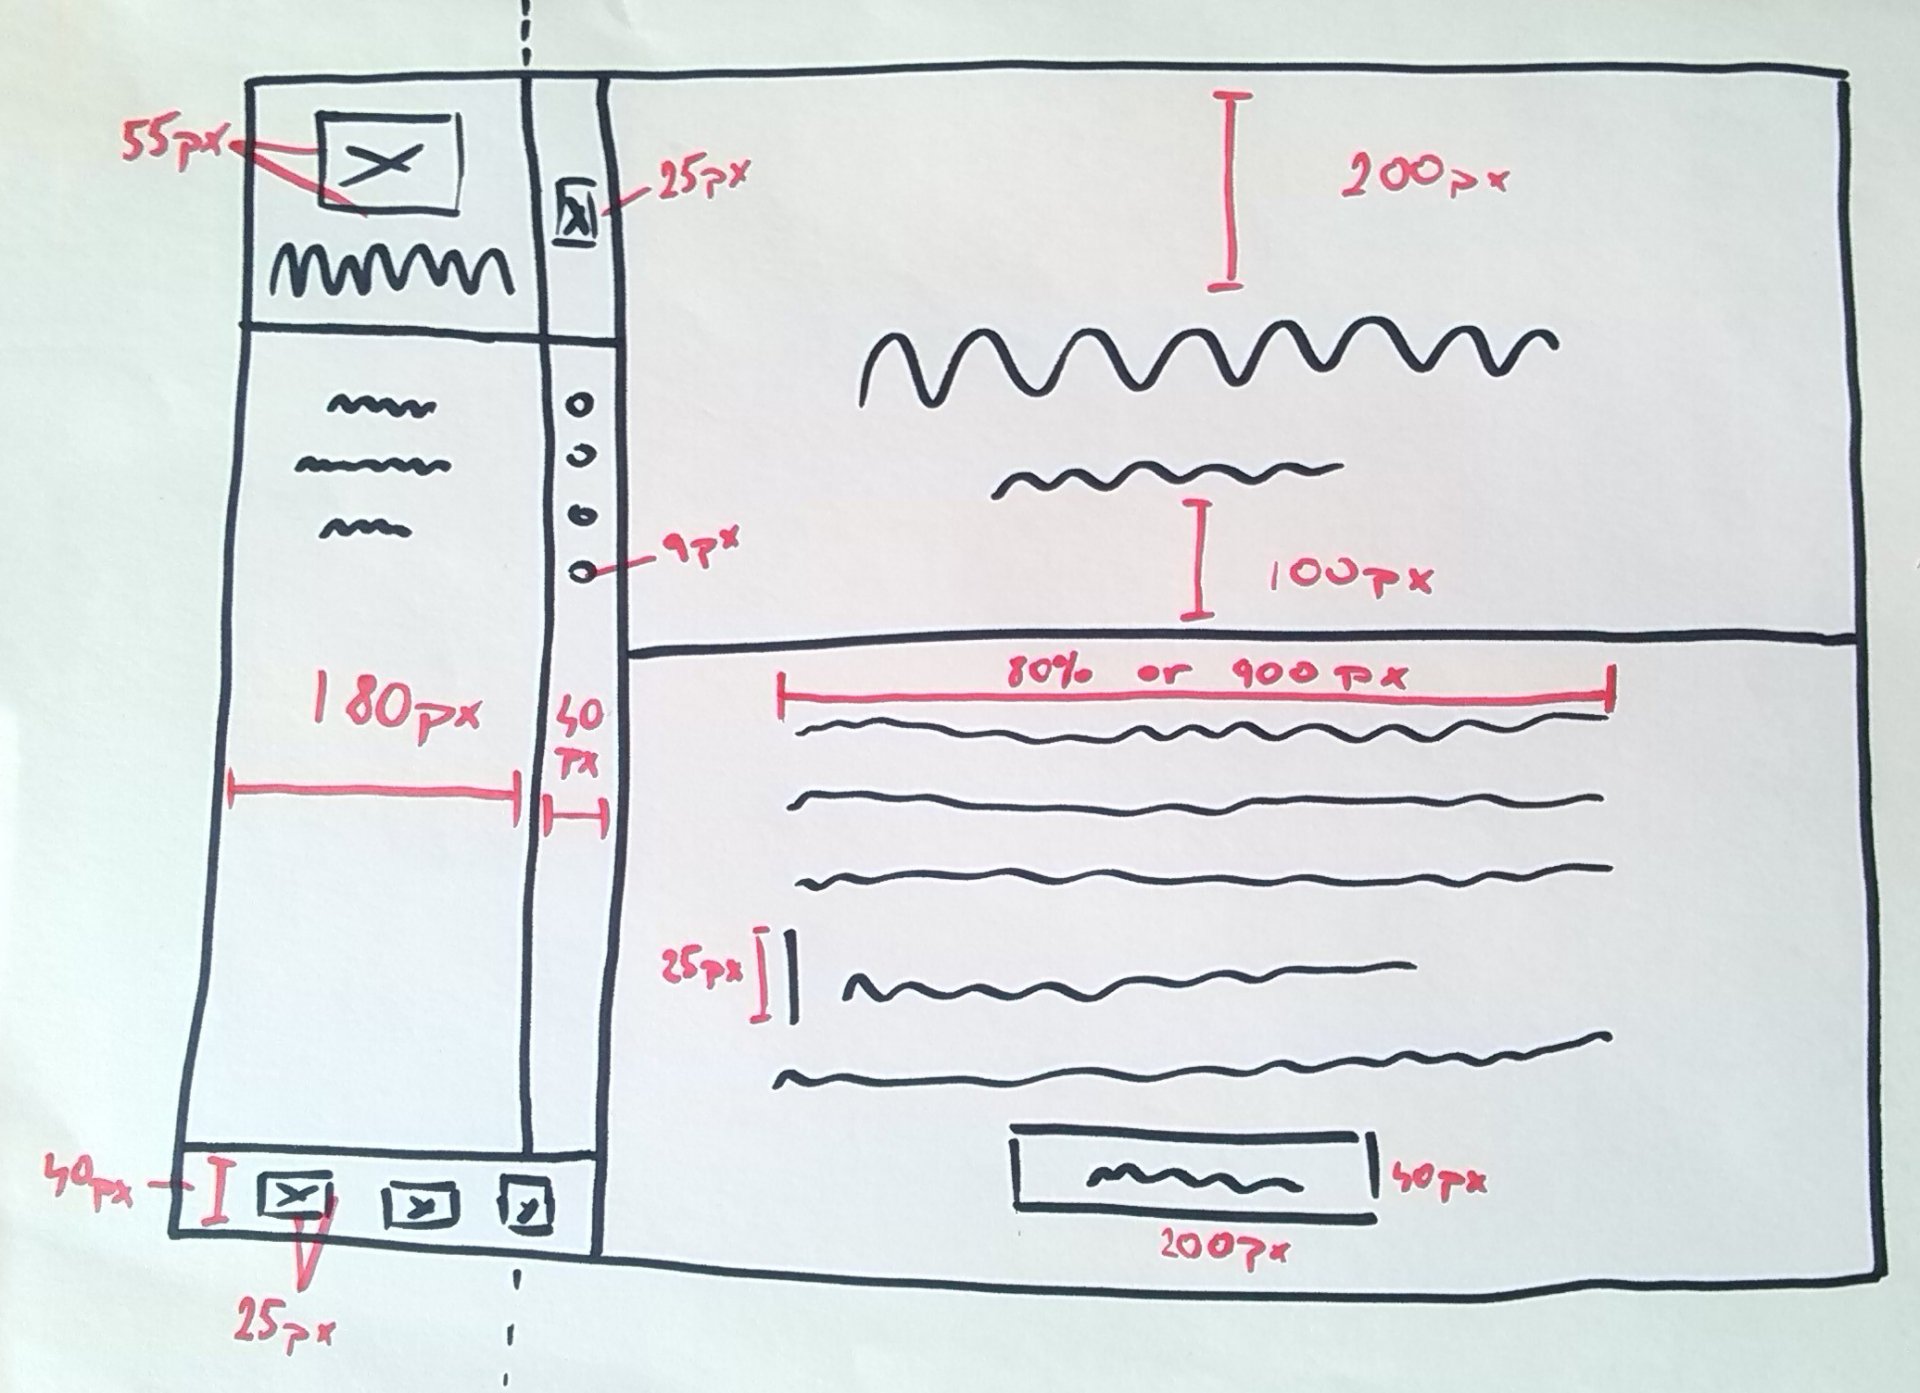 55px
25px
200px
9px
100px
180px
40
px
80% or 900px
25px
40px
25px
40px
200px